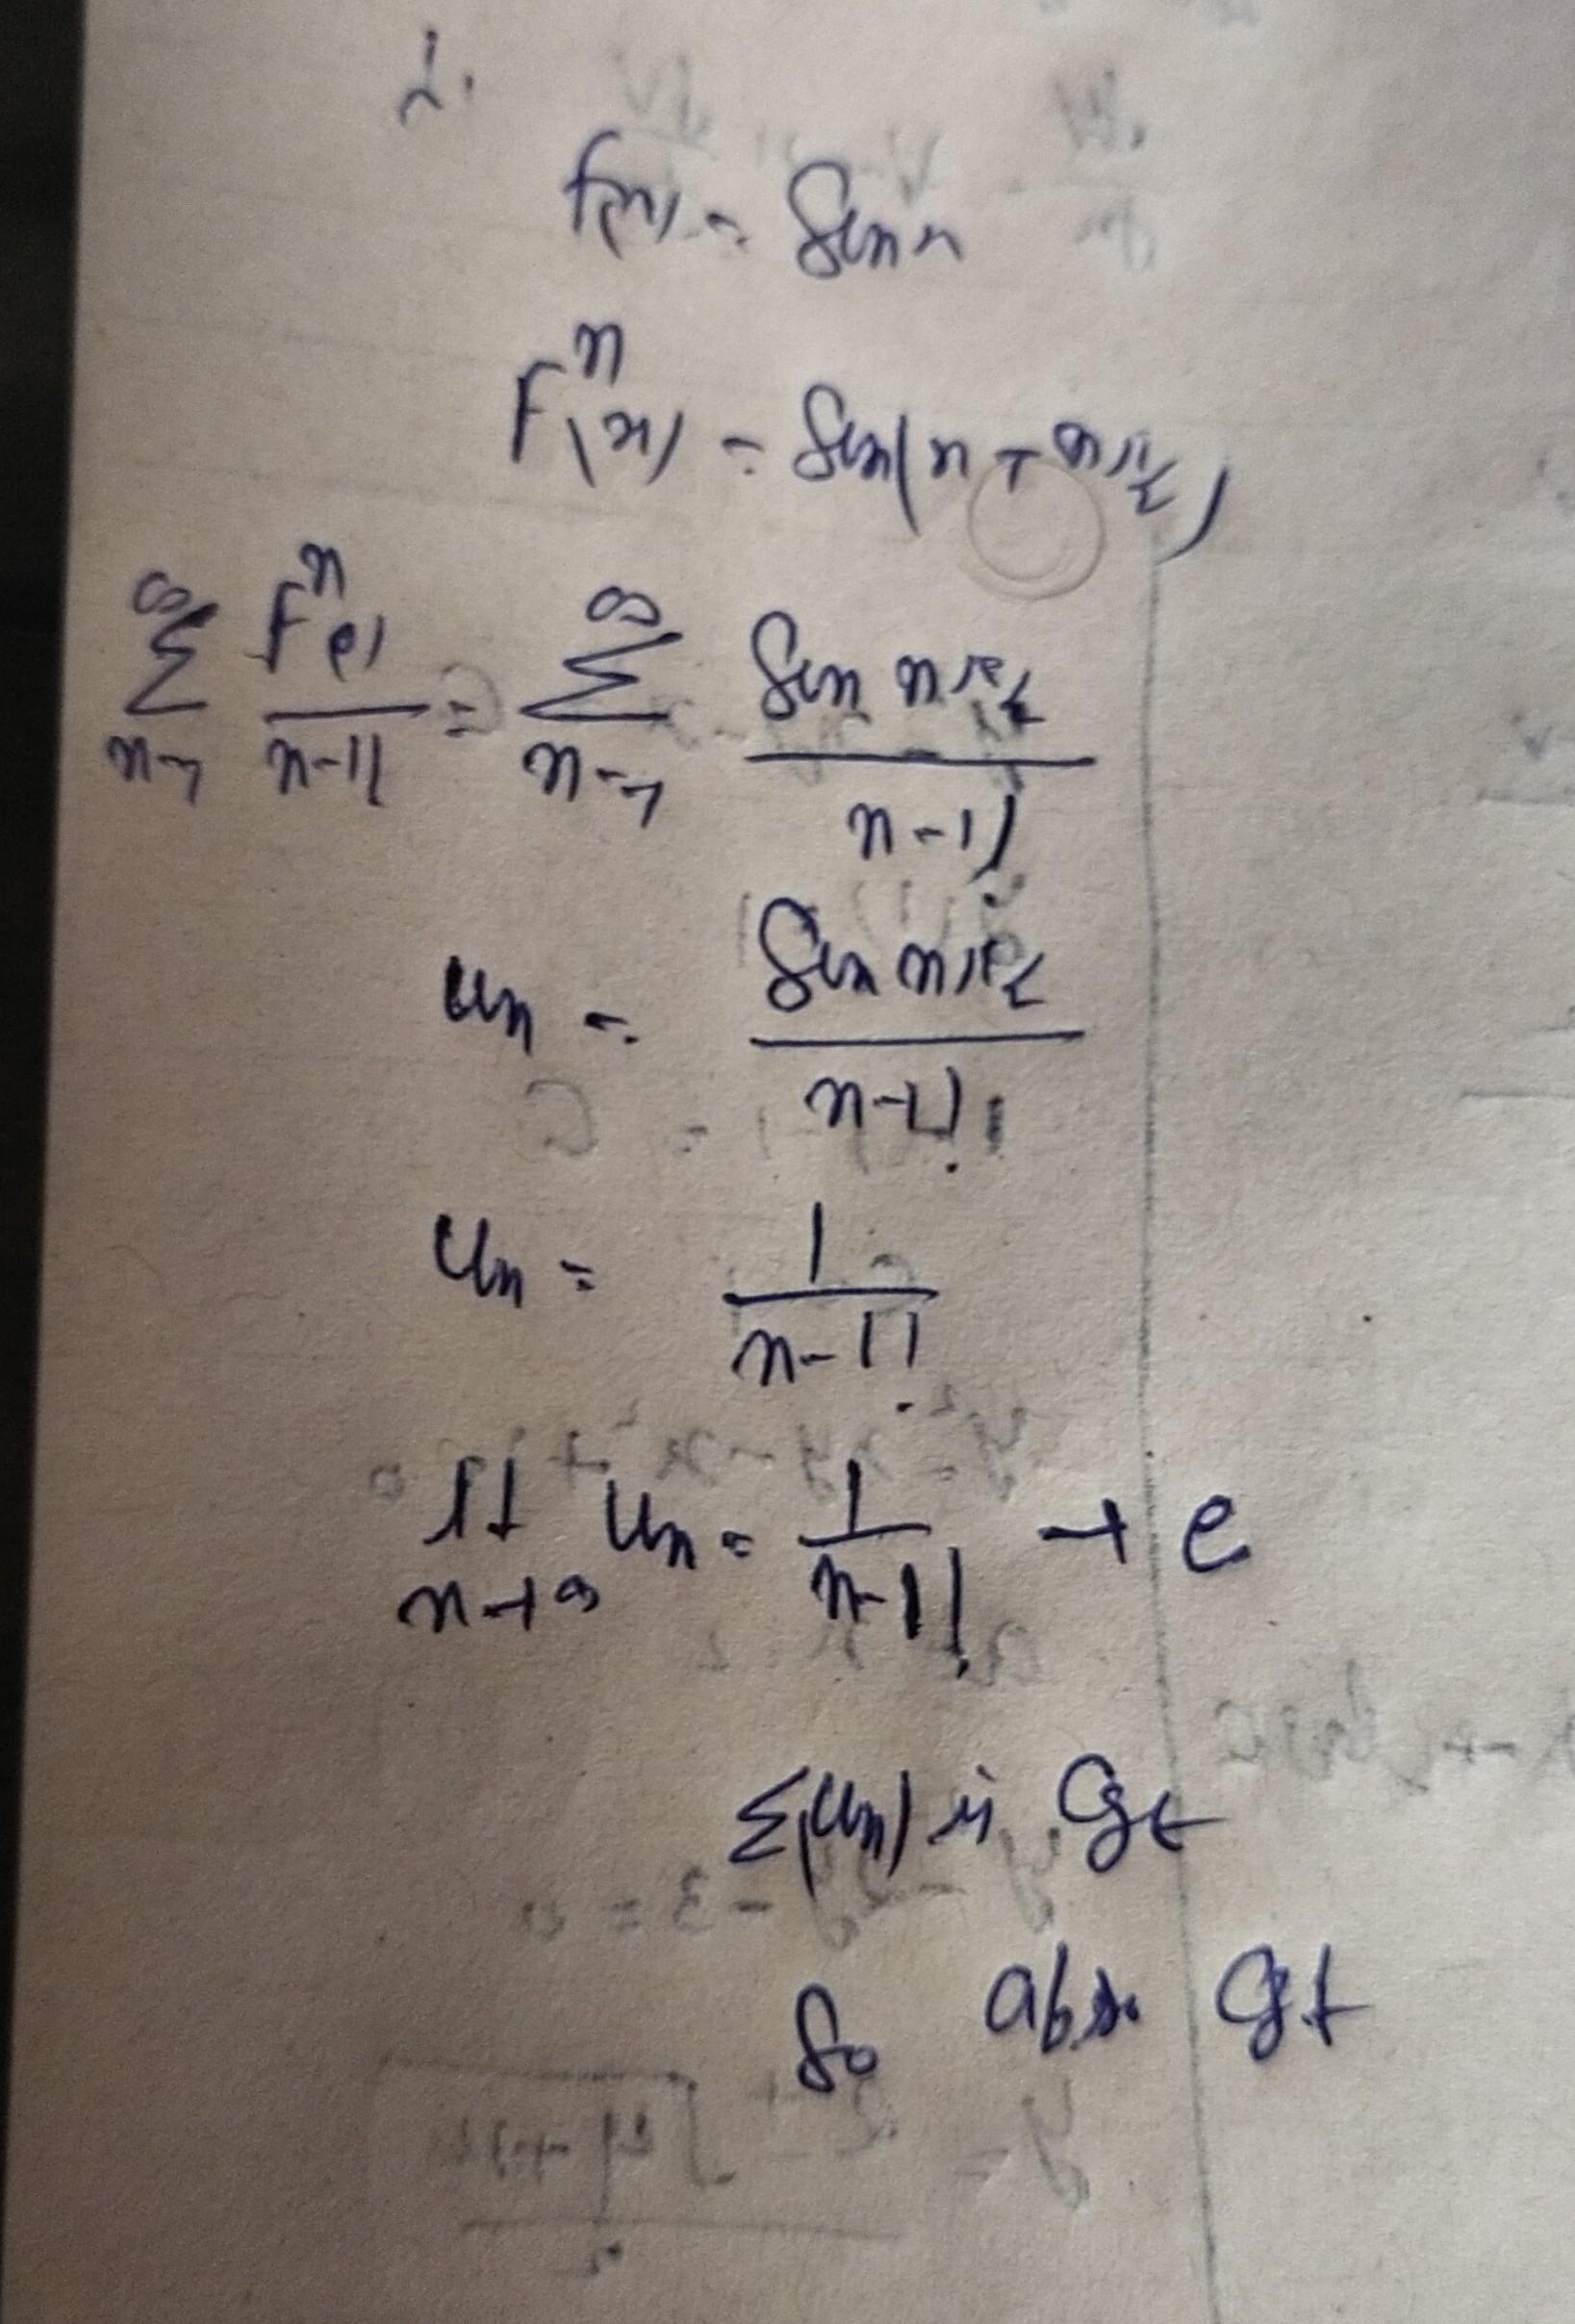 1.
f(x) = Sin x
F^n(x) = Sin(x + nπ/2)
∞∑n=1 F^n(0)/n-1! = ∞∑n=1 Sin nπ/2 / n-1!
un = Sin nπ/2 / n-1!
Un = 1/n-1!
lt n→∞ Un = 1/n-1! → e
Σ(Un) is Cgt
So abs. Cgt